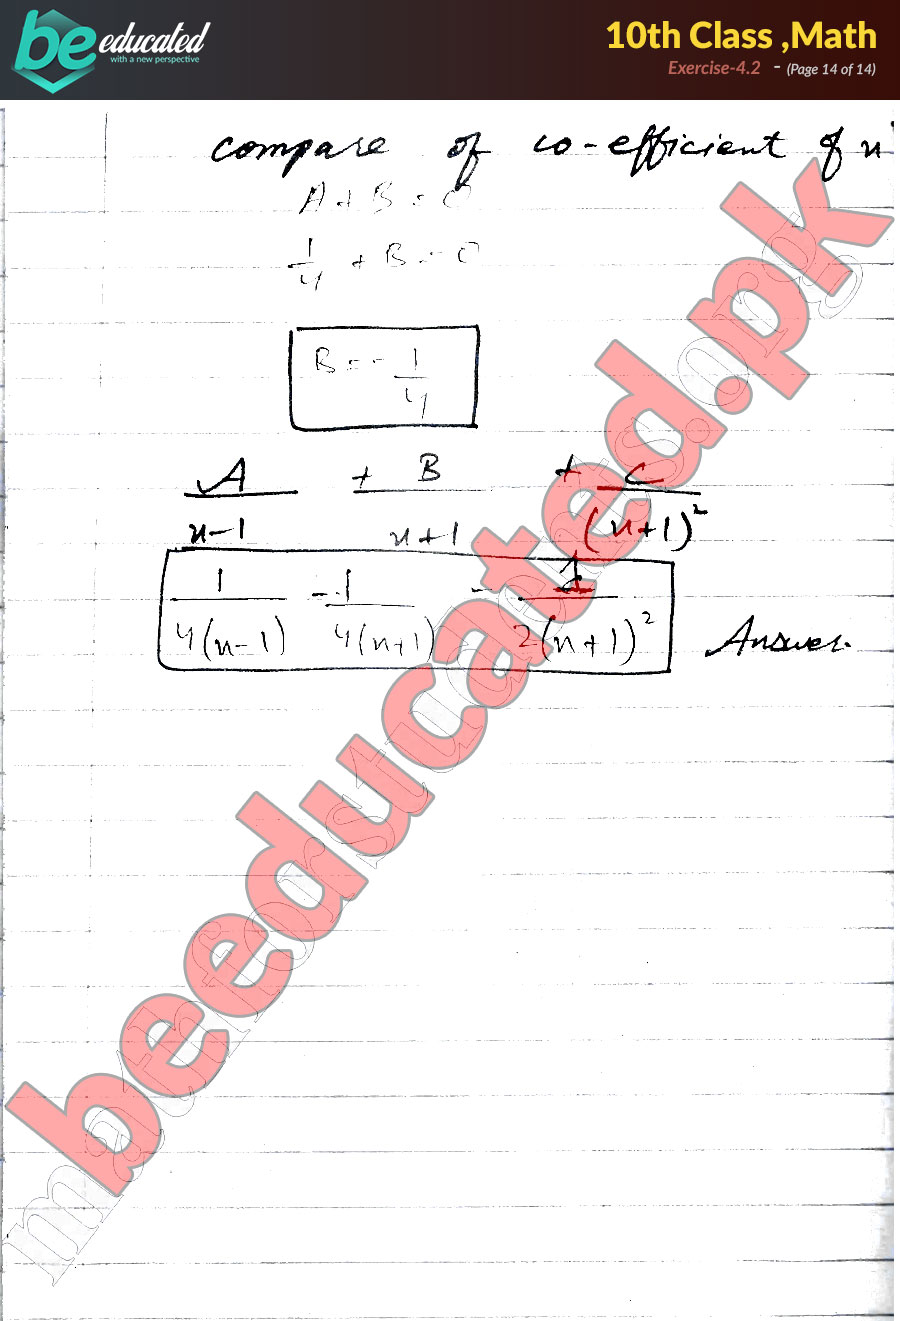 be educated
with a new perspective
10th Class ,Math
Exercise-4.2 - (Page 14 of 14)
compare of co-efficient of x
A + B = 0
1/4 + B = 0
B = - 1/4
A/(x-1) + B/(x+1) + C/(x+1)²
1/4(x-1) - 1/4(x+1) - 1/2(x+1)² Answer.
beeducated.pk